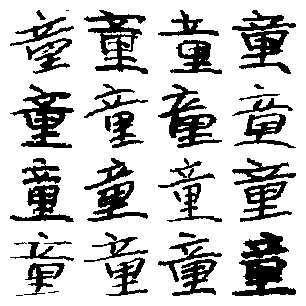 童童童童
童童童童
童童童童
童童童童